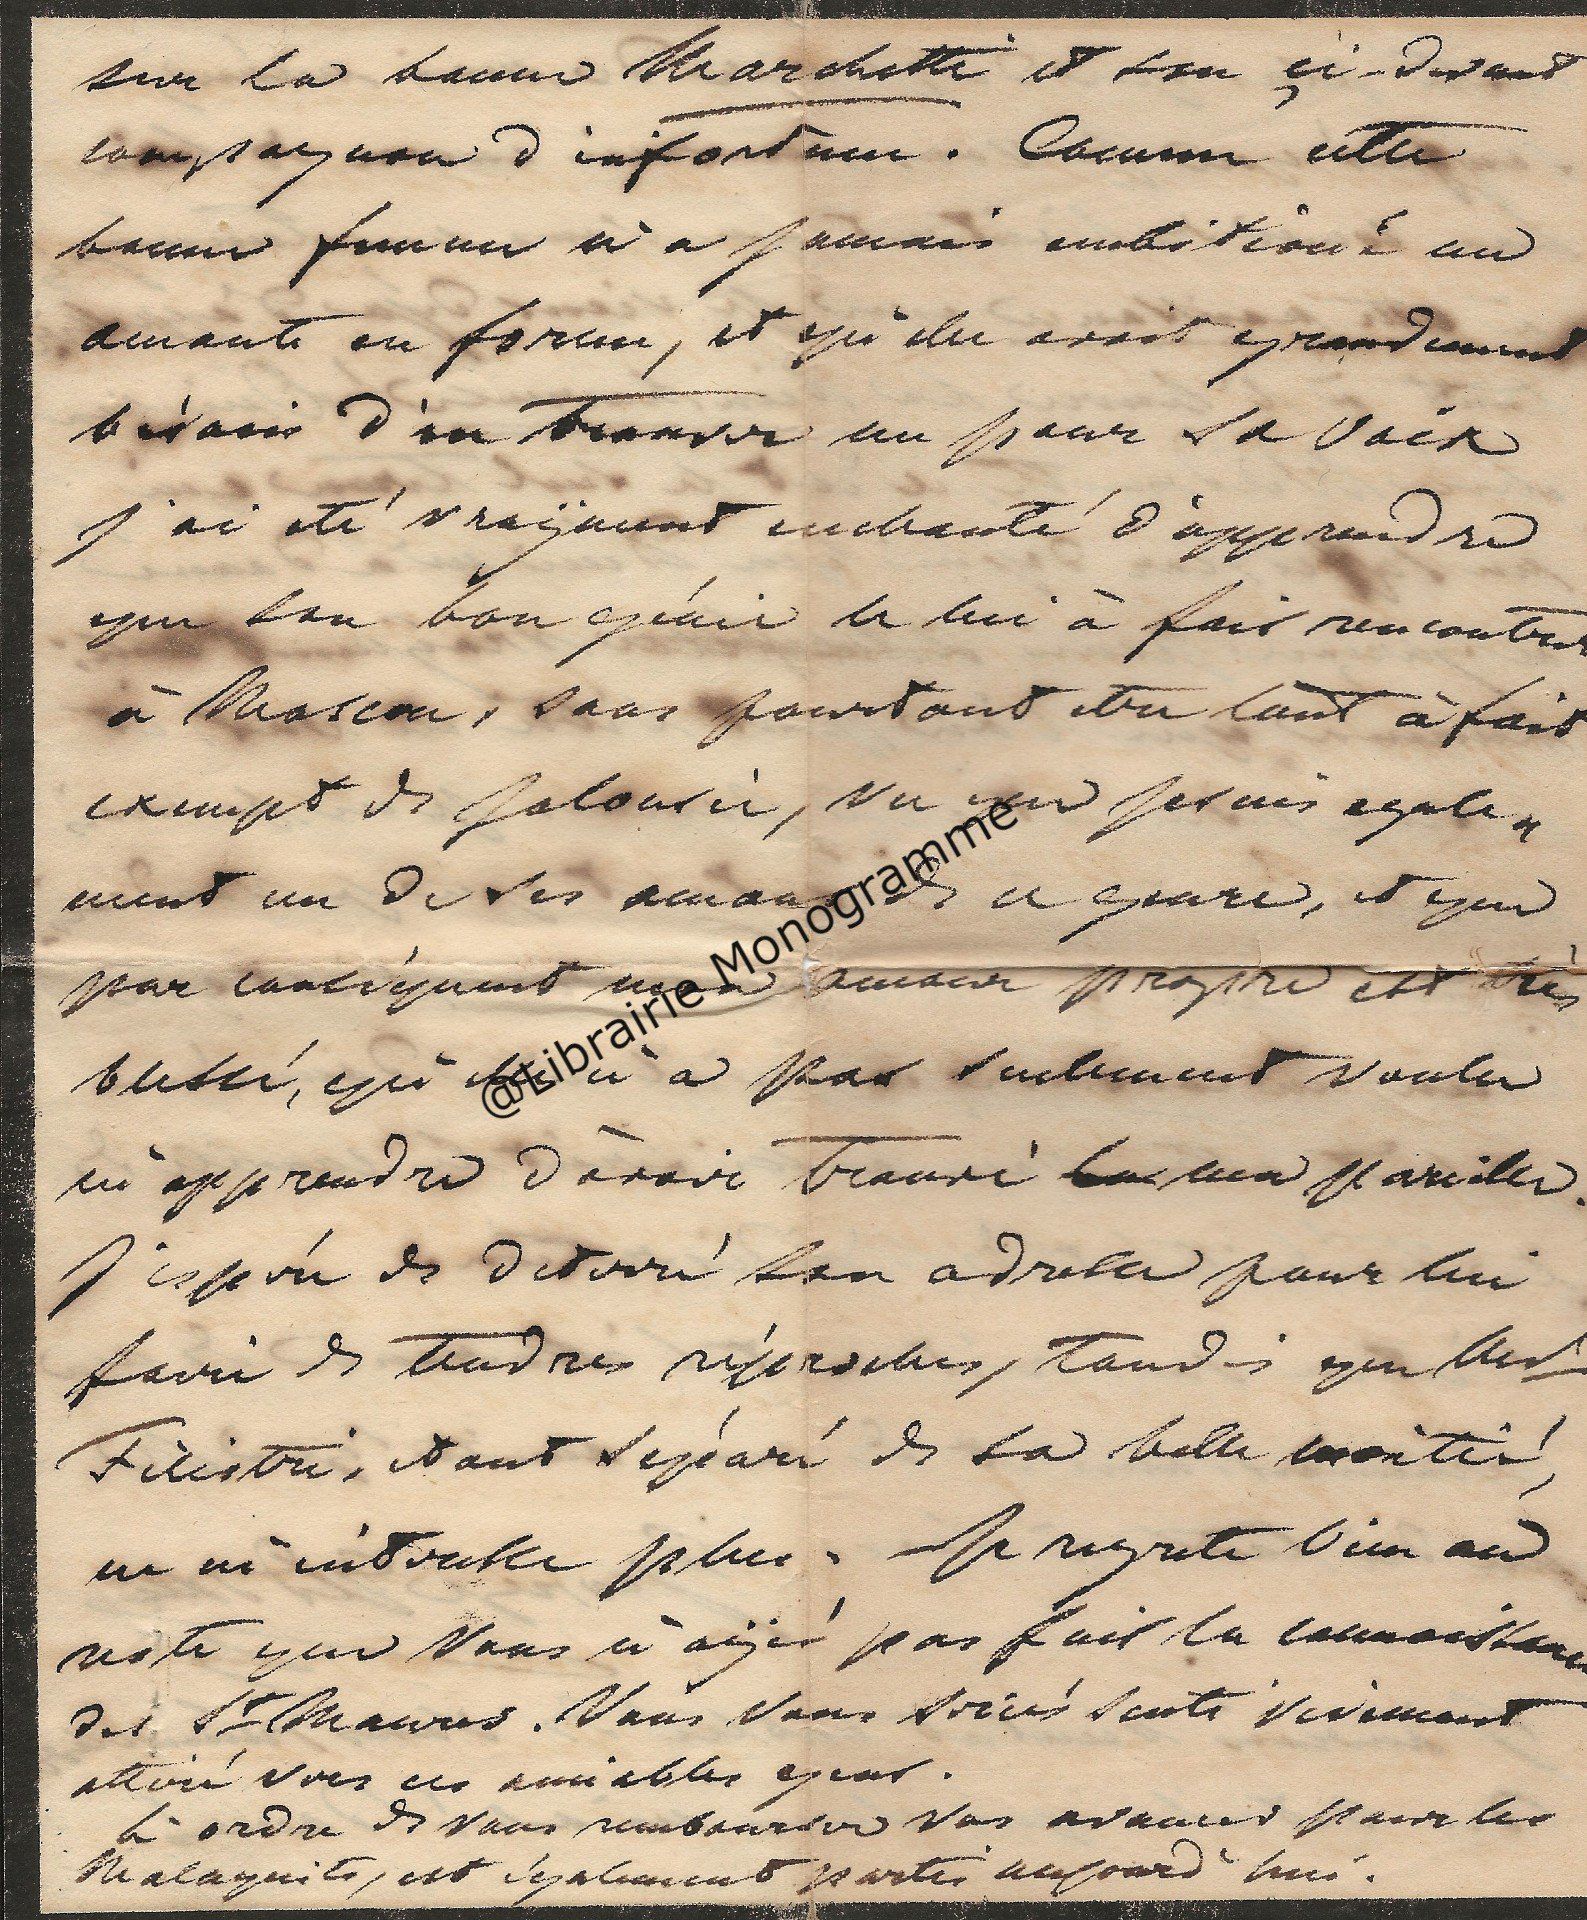 sur la bonne Marchetti et son çi-devant
compagnon d'infortune. Comme cette
bonne femme n'a jamais ambitioné un
amante en forme, et qu'elle avoit grandement
bésoin d'en trouver un pour sa voix
j'ai eté vraijment enchanté d'apprendre
que son bon génie le lui à fait rencontrer
à Moscou, sans pourtant etre tout à fait
exempt de jalousie, vu que je suis egale„
ment un de ses amans de ce genre, et que
par conséquent mon amour propre est très
blessé, qu'elle n'à pas seulement voulu
m'apprendre d'avoir trouvé ma pareille.
J'espére de detérré son adresse pour lui
faire de tendres réproches, tandis que
Filistri, etant séparé de sa belle moitié,
ne m'intéresse plus. Je regrete bien au
reste que Vous n'aijés pas fait la connoissance
des St Maures. Vous Vous seriés senti vivement
attiré vers ces aimables gens.
L'ordre de Vous rembourser Vos avances pour les
Malaquite, est également partie aujourd'hui.
@Librairie Monogramme